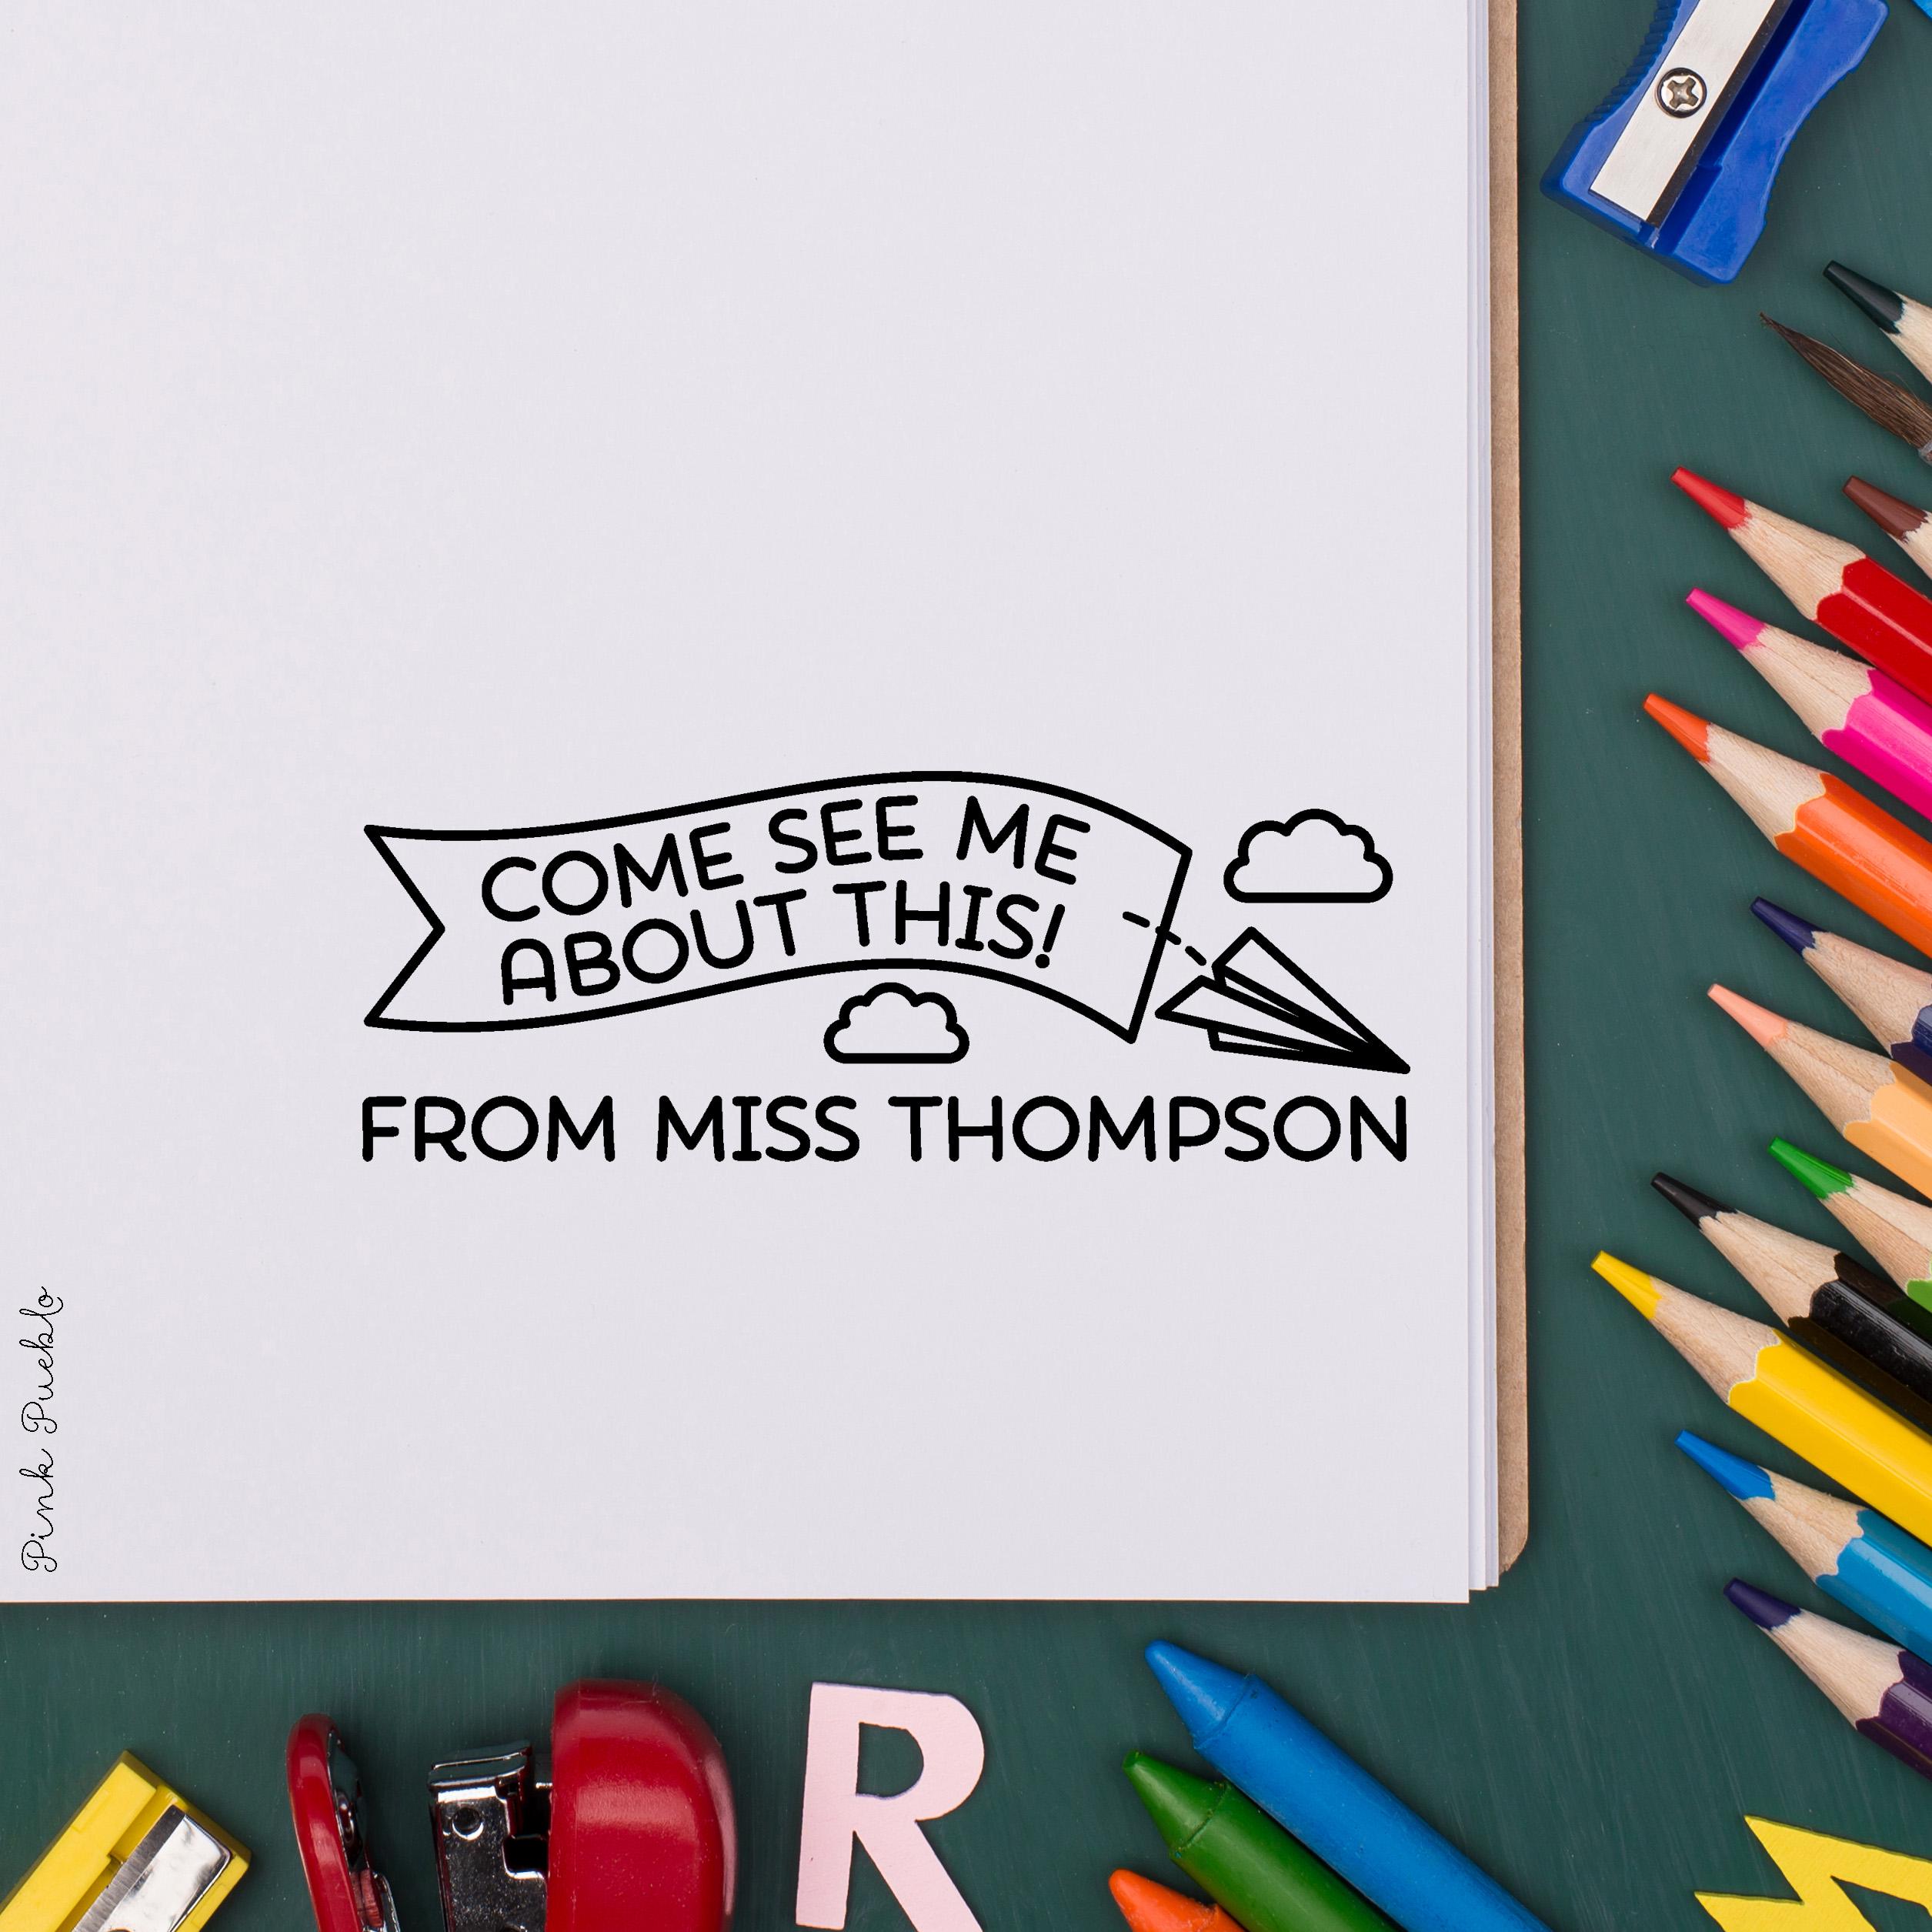 COME SEE ME
ABOUT THIS!
FROM MISS THOMPSON
Pink Pueblo
R